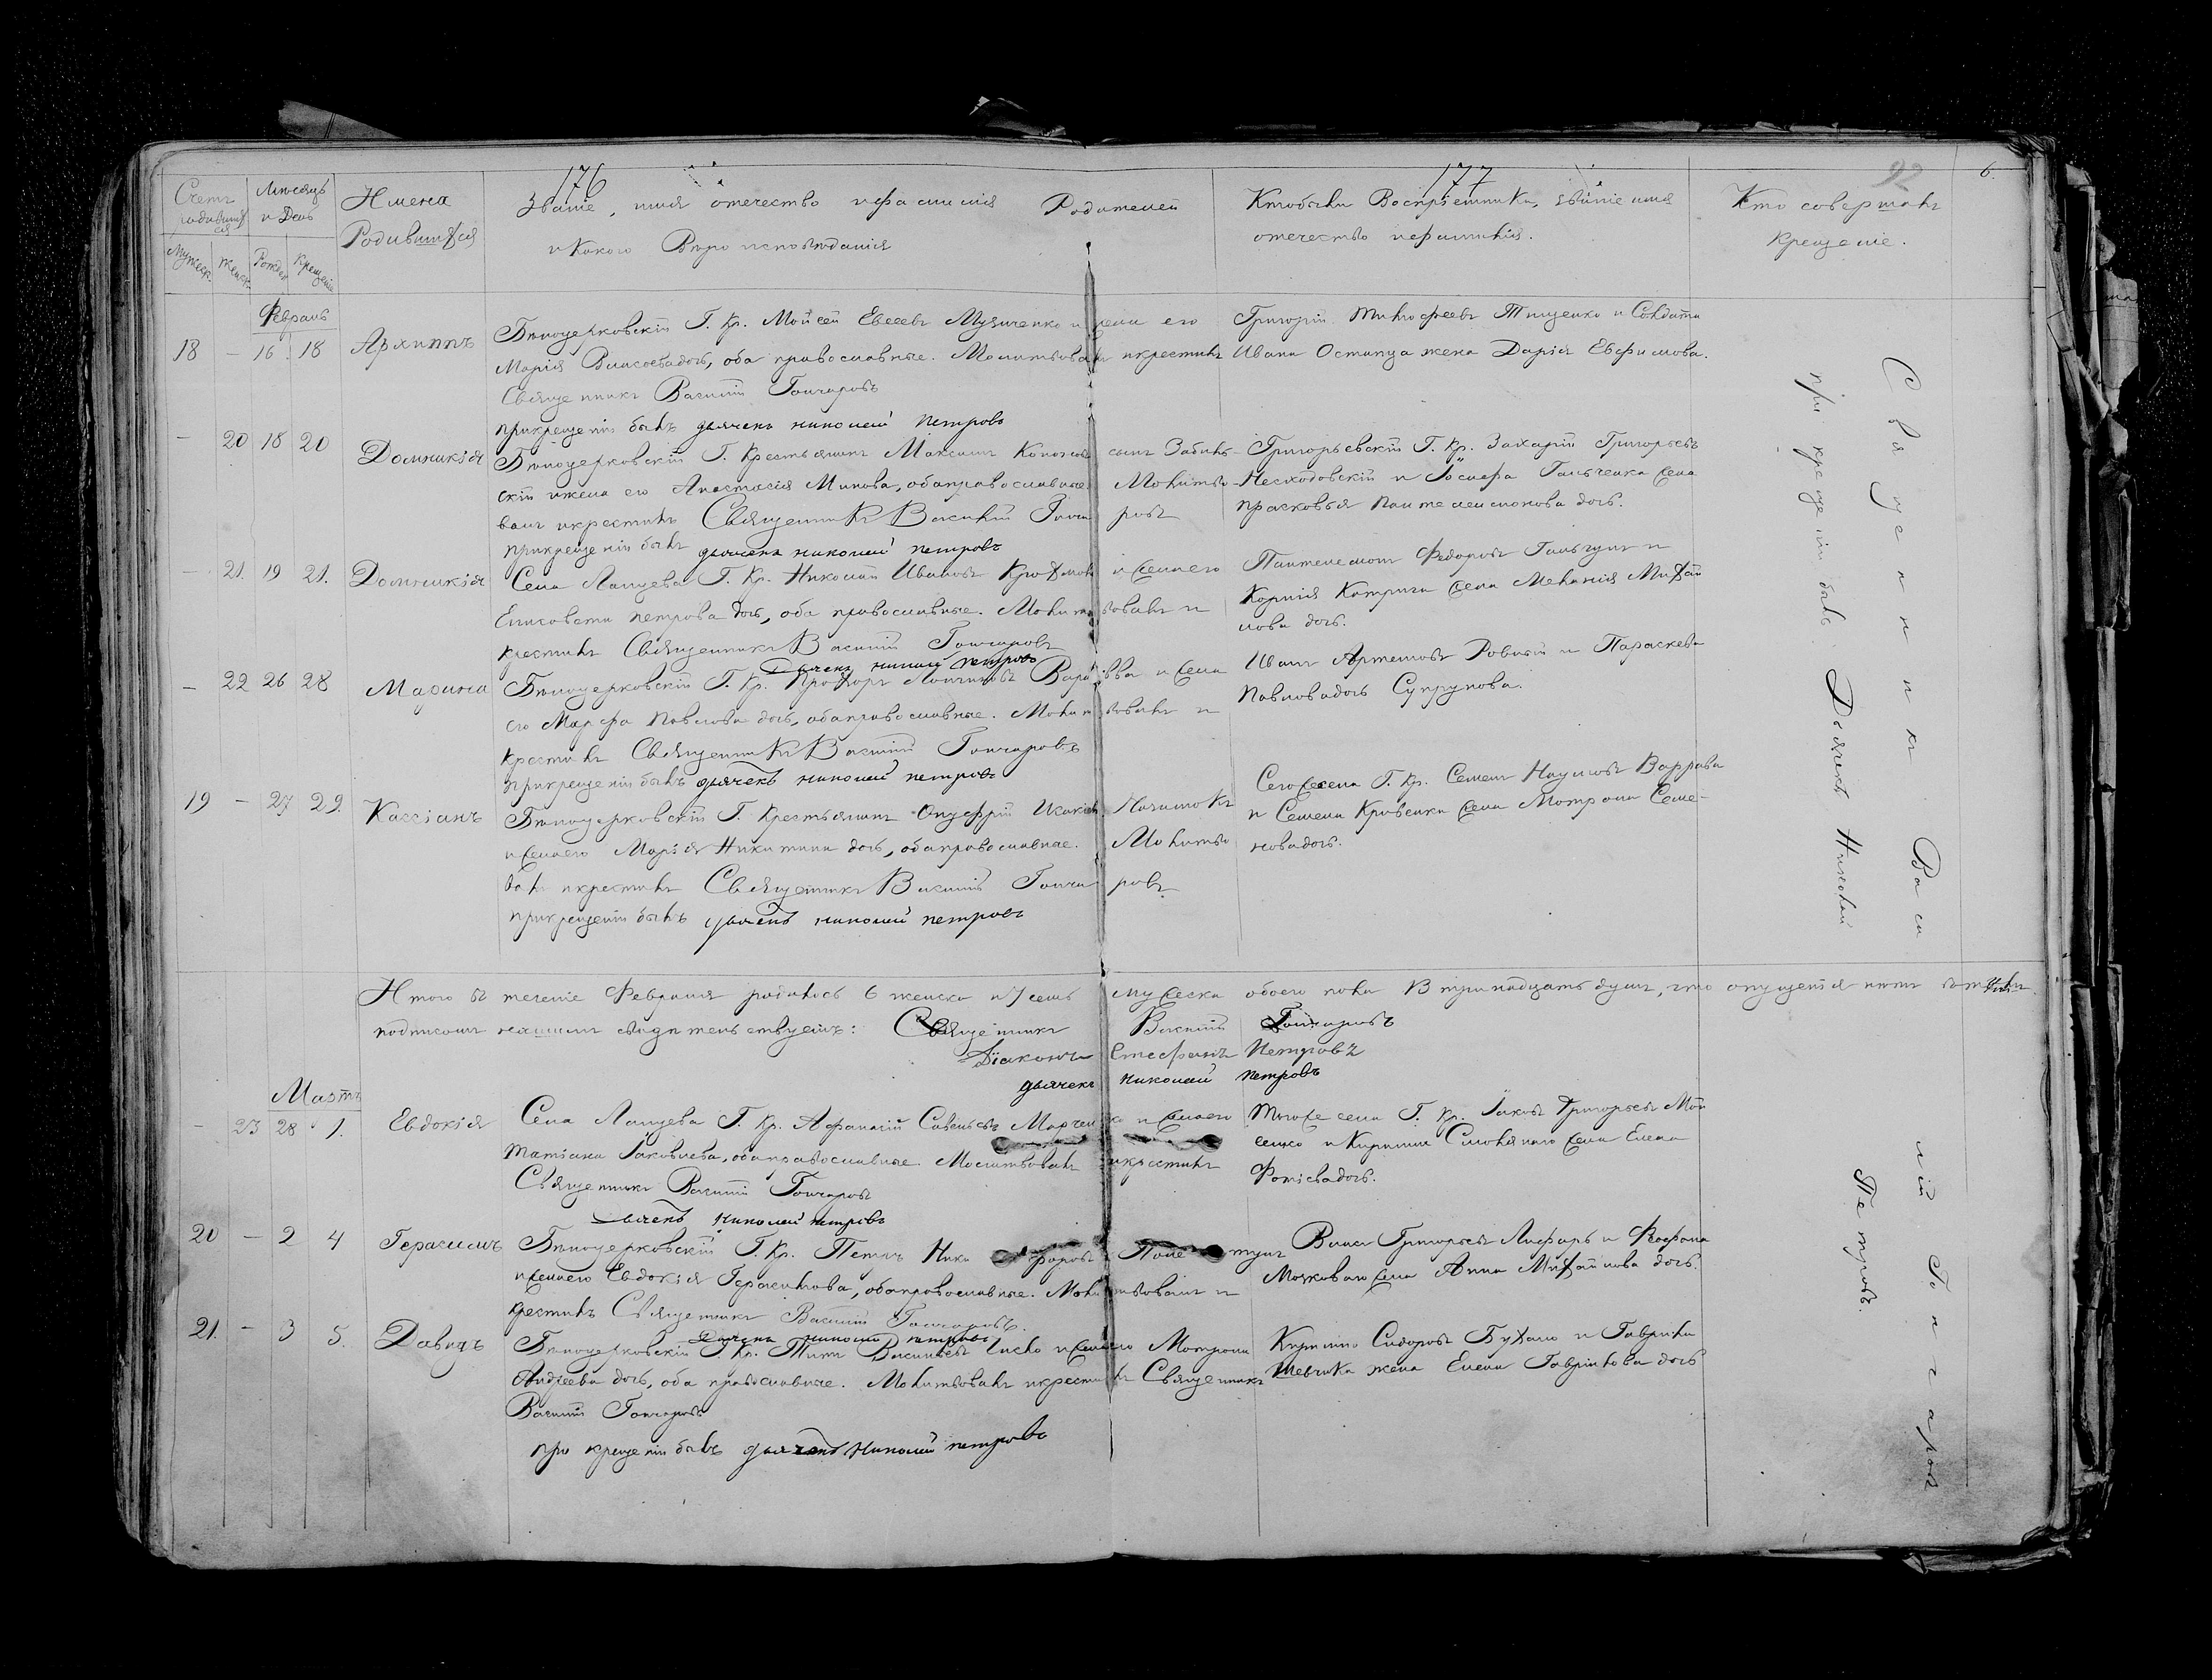 176
177
92
6.
Счетъ родившихся
Мѣсяцъ и День
Имена Родившихся
Званіе, имя отечество и фамилія Родителей
и Какого Вѣроисповѣданія
Кто были Воспріемники, званіе имя
отечество и фамилія.
Кто совершалъ
Крещеніе.
Мужеск.
Женск.
Рожден
Крещеніе
Февраль
18 – 16 18 Архиппъ
Бѣлоцерковскій Г. Кр. Мойсей Евсеевъ Музиченко и жена его
Марія Власоевадочь, оба православные. Молитвовалъ и крестилъ
Священникъ Василій Гончаровъ
При крещеніи былъ дьячекъ николай петровъ
Григорій Тимофеевъ Тищенко и Солдата
Ивана Остапца жена Дарія Евфимова.
– 20 18 20 Домникія
Бѣлоцерковскій Г. Крестьянинъ Максимъ Кононовъ сынъ
скій и жена его Анастасія Минова, оба православные. Молитво-
валъ и крестилъ Священникъ Василій Гончаровъ
При крещеніи былъ дьячекъ николай петровъ
Григорьевскій Г. Кр. Захарій Григорьевъ
Несходовскій и Іосифа Гальченка жена
Прасковья Пантелеимонова дочь.
– 21. 19 21. Домникія
Села Лащева Г. Кр. Николай Ивановъ и жена его
Елисовета петрова дочь, оба православные. Молитвовалъ и
крестилъ Священникъ Василій Гончаровъ
Дьячекъ николай петровъ
Пантелемонъ Федоровъ и
Корнія жена Меланія Михай
лова дочь.
– 22 26 28 Марина
Бѣлоцерковскій Г. Кр. Прохоръ и жена
его Марфа Павлова дочь, оба православные. Молитвовалъ и
крестилъ Священникъ Василій Гончаровъ
При крещеніи былъ дьячекъ николай петровъ
Иванъ Артемовъ Ровный и Параскева
Павловадочь Супрунова.
19 – 27 29. Кассіанъ
Бѣлоцерковскій Г. Крестьянинъ Онуфрій
и жена его Марія Никитина дочь, оба православные. Молитво
валъ и крестилъ Священникъ Василій Гончаровъ
При крещеніи былъ дьячекъ николай петровъ
Сего же села Г. Кр. Семенъ Наумовъ Варрава
и Семена Кривенка жена Мотрона Семе-
новадочь.
Итого въ теченіе Февраля родилось 6 женска и 7 семь мужеска обоего пола В тринадцать душъ, что
подписомъ нашимъ свидѣтельствуемъ: Священникъ Василій Гончаровъ
Діаконъ Стефанъ Петровъ
дьячекъ николай петровъ
Мартъ
– 23 28 1. Евдокія
Села Лащева Г. Кр. Афанасій Савельевъ Марченко и жена его
Татіана Іаковлева, оба православные. Молитвовалъ и крестилъ
Священникъ Василій Гончаровъ
дьячекъ николай петровъ
Того же села Г. Кр. Іаковъ Григорьевъ Мой
сенко и Кирилла Смолянаго жена Елена
Фотіевадочь.
20 – 2 4 Герасимъ
Бѣлоцерковскій Г. Кр. Петръ Никифоровъ
и жена его Евдокія Герасимова, оба православные. Молитвовалъ и
крестилъ Священникъ Василій Гончаровъ.
Дьячекъ николай петровъ
Власъ Григорьевъ Лифарь и Феофана
жена Анна Михайлова дочь.
21. – 3 5. Давидъ
Бѣлоцерковскій Г. Кр. Титъ Васильевъ и жена его Мотрона
Андреева дочь, оба православные. Молитвовалъ и крестилъ Священникъ
Василій Гончаровъ
при крещеніи былъ дьячекъ Николай петровъ
Кирилло Сидоровъ Бухало и Гаврила
Шевчика жена Елена Гаврилова дочь
Священникъ Василій Гончаровъ
при крещеніи былъ Дьячекъ Николай Петровъ.